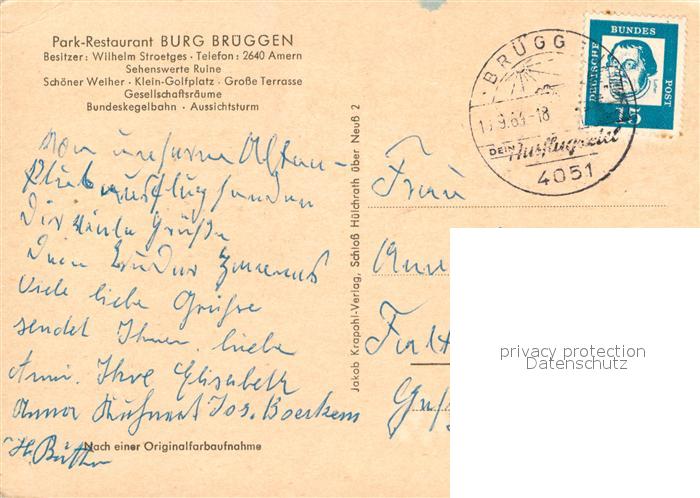 Park-Restaurant BURG BRÜGGEN
Besitzer: Wilhelm Stroetges · Telefon: 2640 Amern
Sehenswerte Ruine
Schöner Weiher · Klein-Golfplatz · Große Terrasse
Gesellschaftsräume
Bundeskegelbahn · Aussichtsturm
Von unserm Alten-
Klubausflug senden
Dir viele Grüße
Dein Bruder
Viele liebe Grüße
sendet Ihnen, liebe
Anni, Ihre Elisabeth
Anna Jos. Boerkens
H.
Nach einer Originalfarbaufnahme
Jakob Krapohl-Verlag, Schloß Hülchrath über Neuß 2
BRÜGG
9.64-18
DEIN Ausflugsziel
4051
DEUTSCHE BUNDES POST
15
Frau
privacy protection
Datenschutz